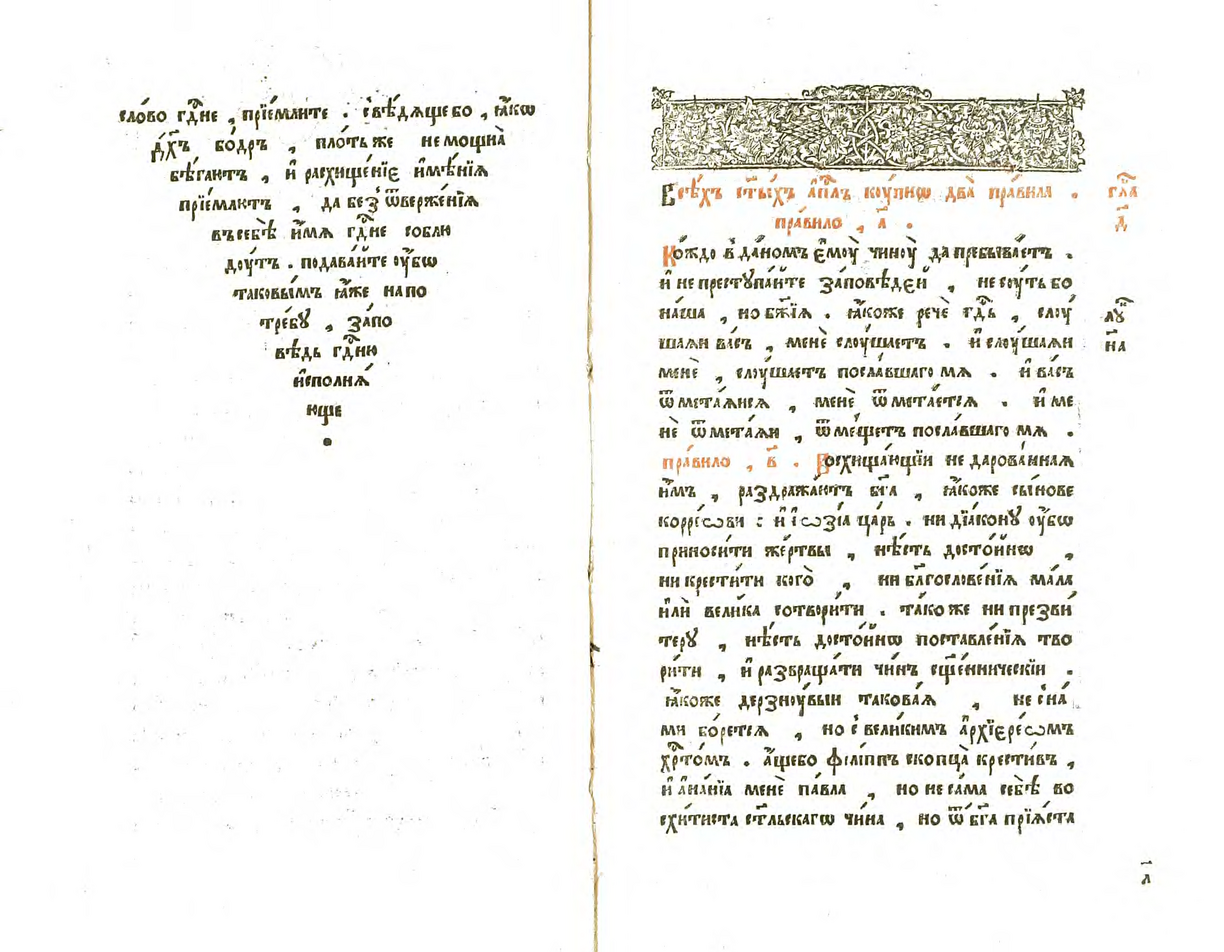 сло́во гдⷭ҇не , прїе́млите . свѣ́дѧще бо , ꙗ҆́кѡ
дх҃ъ бо́дръ , пло́ть же немощна̀
бѣ́гаютъ , и҆ расхище́нїе и҆мѣ́нїѧ
прїе́млютъ , да без̾ ѿверже́нїѧ
въ себѣ̀ и҆́мѧ гдⷭ҇не соблю
дꙋ́тъ . подава́йте ᲂу҆́бѡ
таковы́мъ ꙗ҆́же на по
тре́бꙋ , за́по
вѣдь гдⷭ҇ню
и҆сполнѧ́
юще
•
Всѣ́хъ ст҃ы́хъ а҆пⷭ҇лъ кꙋ́пнѡ два̀ пра́вила .
пра́вило , а҃ .
Ко́ждо в̾ да́номъ є҆мꙋ̀ чинꙋ̀ да пребыва́етъ .
и҆ не престꙋпа́йте за́повѣдей , не сꙋ́ть бо
на́ша , но бж҃їѧ . ꙗ҆́коже речѐ гдⷭ҇ь , слꙋ́
шаѧй ва́съ , менѐ слꙋ́шаетъ . и҆ слꙋ́шаѧй
менѐ , слꙋ́шаетъ посла́вшаго мѧ . и҆ ва́съ
ѿмета́ѧйсѧ , менѐ ѿмета́етсѧ . и҆ ме
нѐ ѿмета́ѧй , ѿме́щетъ посла́вшаго мѧ .
пра́вило , в҃ . Восхища́ющїи не дарова́ннаѧ
и҆̀мъ , раздража́ютъ бг҃а , ꙗ҆́коже сы́нове
коррє́ѡви : и҆ і҆ѡзі́а ца́рь . ни дїа́конꙋ ᲂу҆́бѡ
приноси́ти же́ртвы , нѣ́сть досто́йнѡ ,
ни крести́ти кого̀ , ни блгⷭ҇ове́нїѧ ма́ла
и҆лѝ вели́ка сотвори́ти . та́ко же ни презви́
терꙋ , нѣ́сть досто́йнѡ поставле́нїѧ тво
ри́ти , и҆ развраща́ти чи́нъ сщ҃е́нническїи .
ꙗ҆́коже дерзнꙋ́выи такова́ѧ , не с̾ на́
ми бо́ретсѧ , но с̾ вели́кимъ а҆рхїере́ѡмъ
хрⷭ҇то́мъ . а҆́ще бо фїлі́ппъ скопца̀ крести́въ ,
и҆ а҆на́нїа менѐ па́вла , но не са́ма себѣ̀ во
схи́тиста ст҃льскагѡ чи́на , но ѿ бг҃а прїѧ́ста
гла
д҃
лꙋ
на
л҃